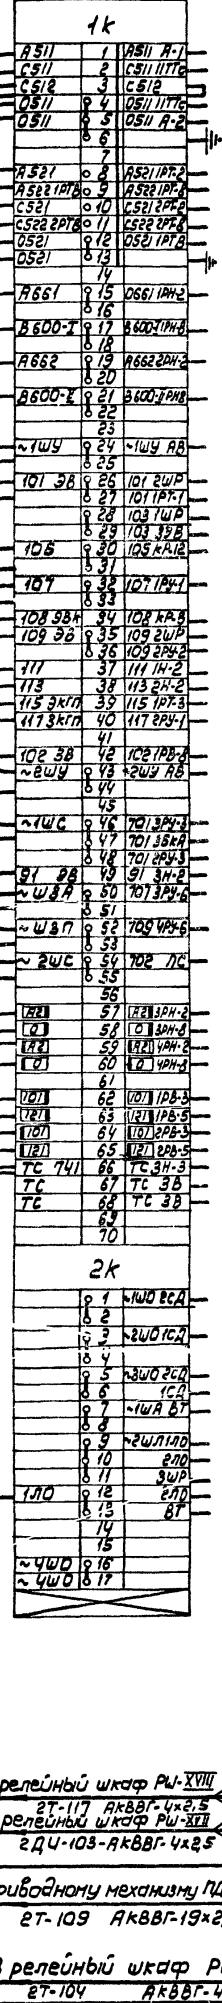 1К
А511 1 А511 А-1
С511 2 С511 1ТТс
С512 3 С512
0511 4 0511 1ТТс
0511 5 0511 А-2
6
7
А521 8 А521 1РТ-2
А522 1РТВ 9 А522 1РТ-8
С521 10 С521 2РТ-2
С522 2РТВ 11 С522 2РТ-8
0521 12 0521 1РТВ
0521 13
14
А661 15 0661 1РН-2
16
В600-I 17 В600-I 1РН-8
18
А662 19 А662 2РН-2
20
В600-II 21 В600-II РН8
22
23
~1ШУ 24 ~1ШУ АВ
25
101 ЭВ 26 101 2ШР
27 101 1РТ-1
28 103 1ШР
29 103 ЭЭВ
105 30 105 КР-12
31
107 32 107 1РУ-1
33
108 ЭВк 34 108 КР-9
109 ЭО 35 109 2ШР
36 109 2РУ-2
111 37 111 1Н-2
113 38 113 2Н-2
115 ЭКГП 39 115 1РТ-3
117 ЭКГП 40 117 2РУ-1
41
102 ЭВ 42 102 1РВ-8
~2ШУ 43 ~2ШУ АВ
44
45
~1ШС 46 701 3РУ-3
47 701 ЭБКА
48 701 2РУ-3
91 ЭВ 49 91 3Н-2
~ШЗА 50 707 3РУ-6
51
~ШЗП 52 709 4РУ-6
53
~2ШС 54 702 ЛС
55
56
А2 57 А2 3РН-2
0 58 0 3РН-8
А2 59 А2 4РН-2
0 60 0 4РН-8
61
101 62 101 1РВ-3
121 63 121 1РВ-5
101 64 101 2РВ-3
121 65 121 2РВ-5
ТС 741 66 ТС 3Н-3
ТС 67 ТС ЗВ
ТС 68 ТС ЗВ
69
70
2К
1 ~1ШО 2СД
2
3 ~2ШО 1СД
4
5 ~3ШО 2СД
6 1СД
7 ~1ША ВТ
8
9 ~2ШЛ 1ЛО
10 2ЛО
11 3ШР
1ЛО 12 2ЛО
13 ВТ
14
15
~4ШО 16
~4ШО 17
релейный шкаф РШ-XVIII
2Т-117 АКВВГ-4х2,5
релейный шкаф РШ-XVII
2ДЦ-103-АКВВГ-4х2,5
риводному механизму ПД
2Т-109 АКВВГ-19х2,
В релейный шкаф Р
2Т-104 АКВВГ-4